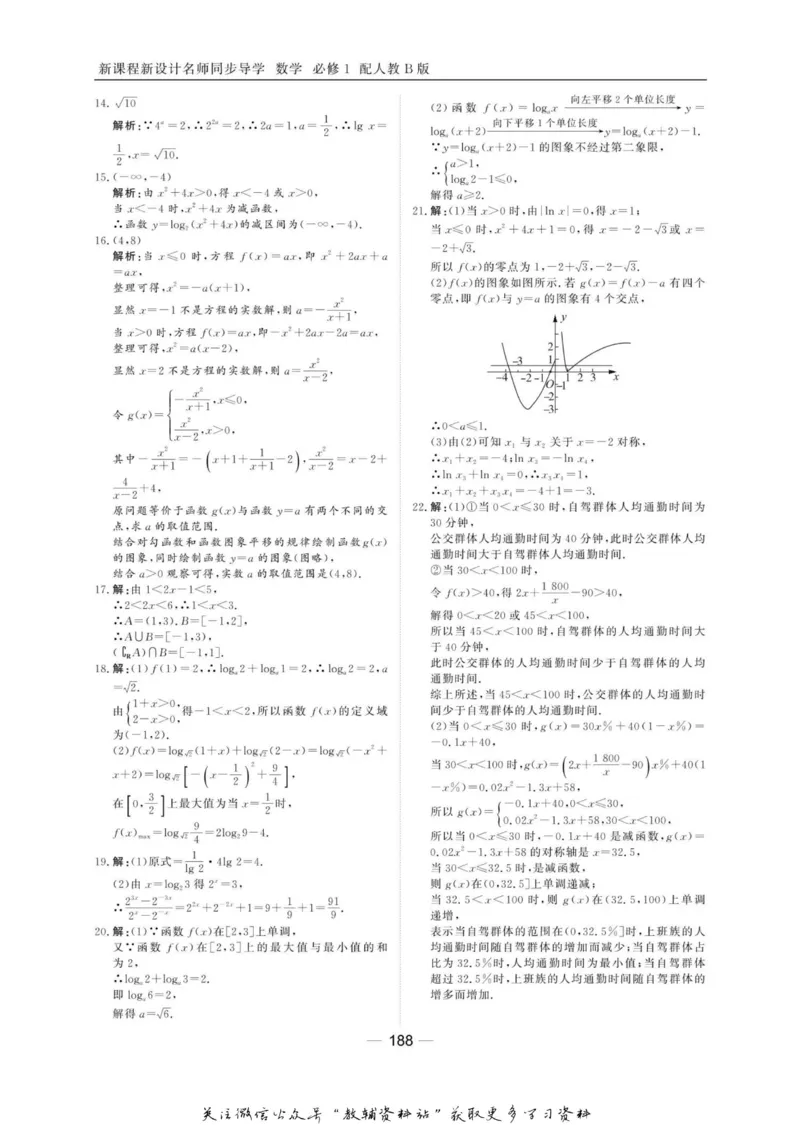 新课程新设计名师同步导学 数学 必修1 配人教B版
14. √10
解析:∵4^a=2,∴2^{2a}=2,∴2a=1,a=1/2,∴lg x=
1/2,x=√10.
15.(-∞,-4)
解析:由 x²+4x>0,得 x<-4 或 x>0,
当 x<-4 时,x²+4x 为减函数,
∴函数 y=log₂(x²+4x)的减区间为(-∞,-4).
16.(4,8)
解析:当 x≤0 时,方程 f(x)=ax,即 x²+2ax+a
=ax,
整理可得,x²=-a(x+1),
显然 x=-1 不是方程的实数解,则 a=-x²/(x+1),
当 x>0 时,方程 f(x)=ax,即-x²+2ax-2a=ax,
整理可得,x²=a(x-2),
显然 x=2 不是方程的实数解,则 a=x²/(x-2),
令 g(x)={-x²/(x+1),x≤0,
x²/(x-2),x>0,
其中-x²/(x+1)=-(x+1+1/(x+1)-2),x²/(x-2)=x-2+
4/(x-2)+4,
原问题等价于函数 g(x)与函数 y=a 有两个不同的交
点,求 a 的取值范围.
结合对勾函数和函数图象平移的规律绘制函数 g(x)
的图象,同时绘制函数 y=a 的图象(图略),
结合 a>0 观察可得,实数 a 的取值范围是(4,8).
17.解:由 1<2x-1<5,
∴2<2x<6,∴1<x<3.
∴A=(1,3).B=[-1,2],
∴A∪B=[-1,3),
(∁_R A)∩B=[-1,1].
18.解:(1)f(1)=2,∴log_a 2+log_a 1=2,∴log_a 2=2,a
=√2.
由{1+x>0,
2-x>0,得-1<x<2,所以函数 f(x)的定义域
为(-1,2).
(2)f(x)=log_{√2}(1+x)+log_{√2}(2-x)=log_{√2}(-x²+
x+2)=log_{√2}[-(x-1/2)²+9/4],
在[0,3/2]上最大值为当 x=1/2时,
f(x)_{max}=log_{√2} 9/4=2log₂9-4.
19.解:(1)原式=1/lg 2·4lg 2=4.
(2)由 x=log₂3 得 2^x=3,
∴(2^{3x}-2^{-3x})/(2^x-2^{-x})=2^{2x}+2^{-2x}+1=9+1/9+1=91/9.
20.解:(1)∵函数 f(x)在[2,3]上单调,
又∵函数 f(x)在[2,3]上的最大值与最小值的和
为 2,
∴log_a 2+log_a 3=2.
即 log_a 6=2,
解得 a=√6.
(2)函数 f(x)=log_a x 向左平移2个单位长度→ y=
log_a(x+2) 向下平移1个单位长度→ y=log_a(x+2)-1.
∵y=log_a(x+2)-1 的图象不经过第二象限,
∴{a>1,
log_a 2-1≤0,
解得 a≥2.
21.解:(1)当 x>0 时,由|ln x|=0,得 x=1;
当 x≤0 时,x²+4x+1=0,得 x=-2-√3或 x=
-2+√3.
所以 f(x)的零点为 1,-2+√3,-2-√3.
(2)f(x)的图象如图所示.若 g(x)=f(x)-a 有四个
零点,即 f(x)与 y=a 的图象有 4 个交点,
y
2
-3 1
-4 -2 -1 O 1 2 3 x
-1
-2
-3
∴0<a≤1.
(3)由(2)可知 x₁ 与 x₂ 关于 x=-2 对称,
∴x₁+x₂=-4;ln x₃=-ln x₄,
∴ln x₃+ln x₄=0,∴x₃x₄=1,
∴x₁+x₂+x₃x₄=-4+1=-3.
22.解:(1)①当 0<x≤30 时,自驾群体人均通勤时间为
30 分钟,
公交群体人均通勤时间为 40 分钟,此时公交群体人均
通勤时间大于自驾群体人均通勤时间.
②当 30<x<100 时,
令 f(x)>40,得 2x+1 800/x-90>40,
解得 0<x<20 或 45<x<100,
所以当 45<x<100 时,自驾群体的人均通勤时间大
于 40 分钟,
此时公交群体的人均通勤时间少于自驾群体的人均
通勤时间.
综上所述,当 45<x<100 时,公交群体的人均通勤时
间少于自驾群体的人均通勤时间.
(2)当 0<x≤30 时,g(x)=30x%+40(1-x%)=
-0.1x+40,
当 30<x<100 时,g(x)=(2x+1 800/x-90)x%+40(1
-x%)=0.02x²-1.3x+58,
所以 g(x)={-0.1x+40,0<x≤30,
0.02x²-1.3x+58,30<x<100,
所以当 0<x≤30 时,-0.1x+40 是减函数,g(x)=
0.02x²-1.3x+58 的对称轴是 x=32.5,
当 30<x≤32.5 时,是减函数,
则 g(x)在(0,32.5]上单调递减;
当 32.5<x<100 时,则 g(x)在(32.5,100)上单调
递增,
表示当自驾群体的范围在(0,32.5%]时,上班族的人
均通勤时间随自驾群体的增加而减少;当自驾群体占
比为 32.5%时,人均通勤时间为最小值;当自驾群体
超过 32.5%时,上班族的人均通勤时间随自驾群体的
增多而增加.
— 188 —
关注微信公众号"教辅资料站"获取更多学习资料